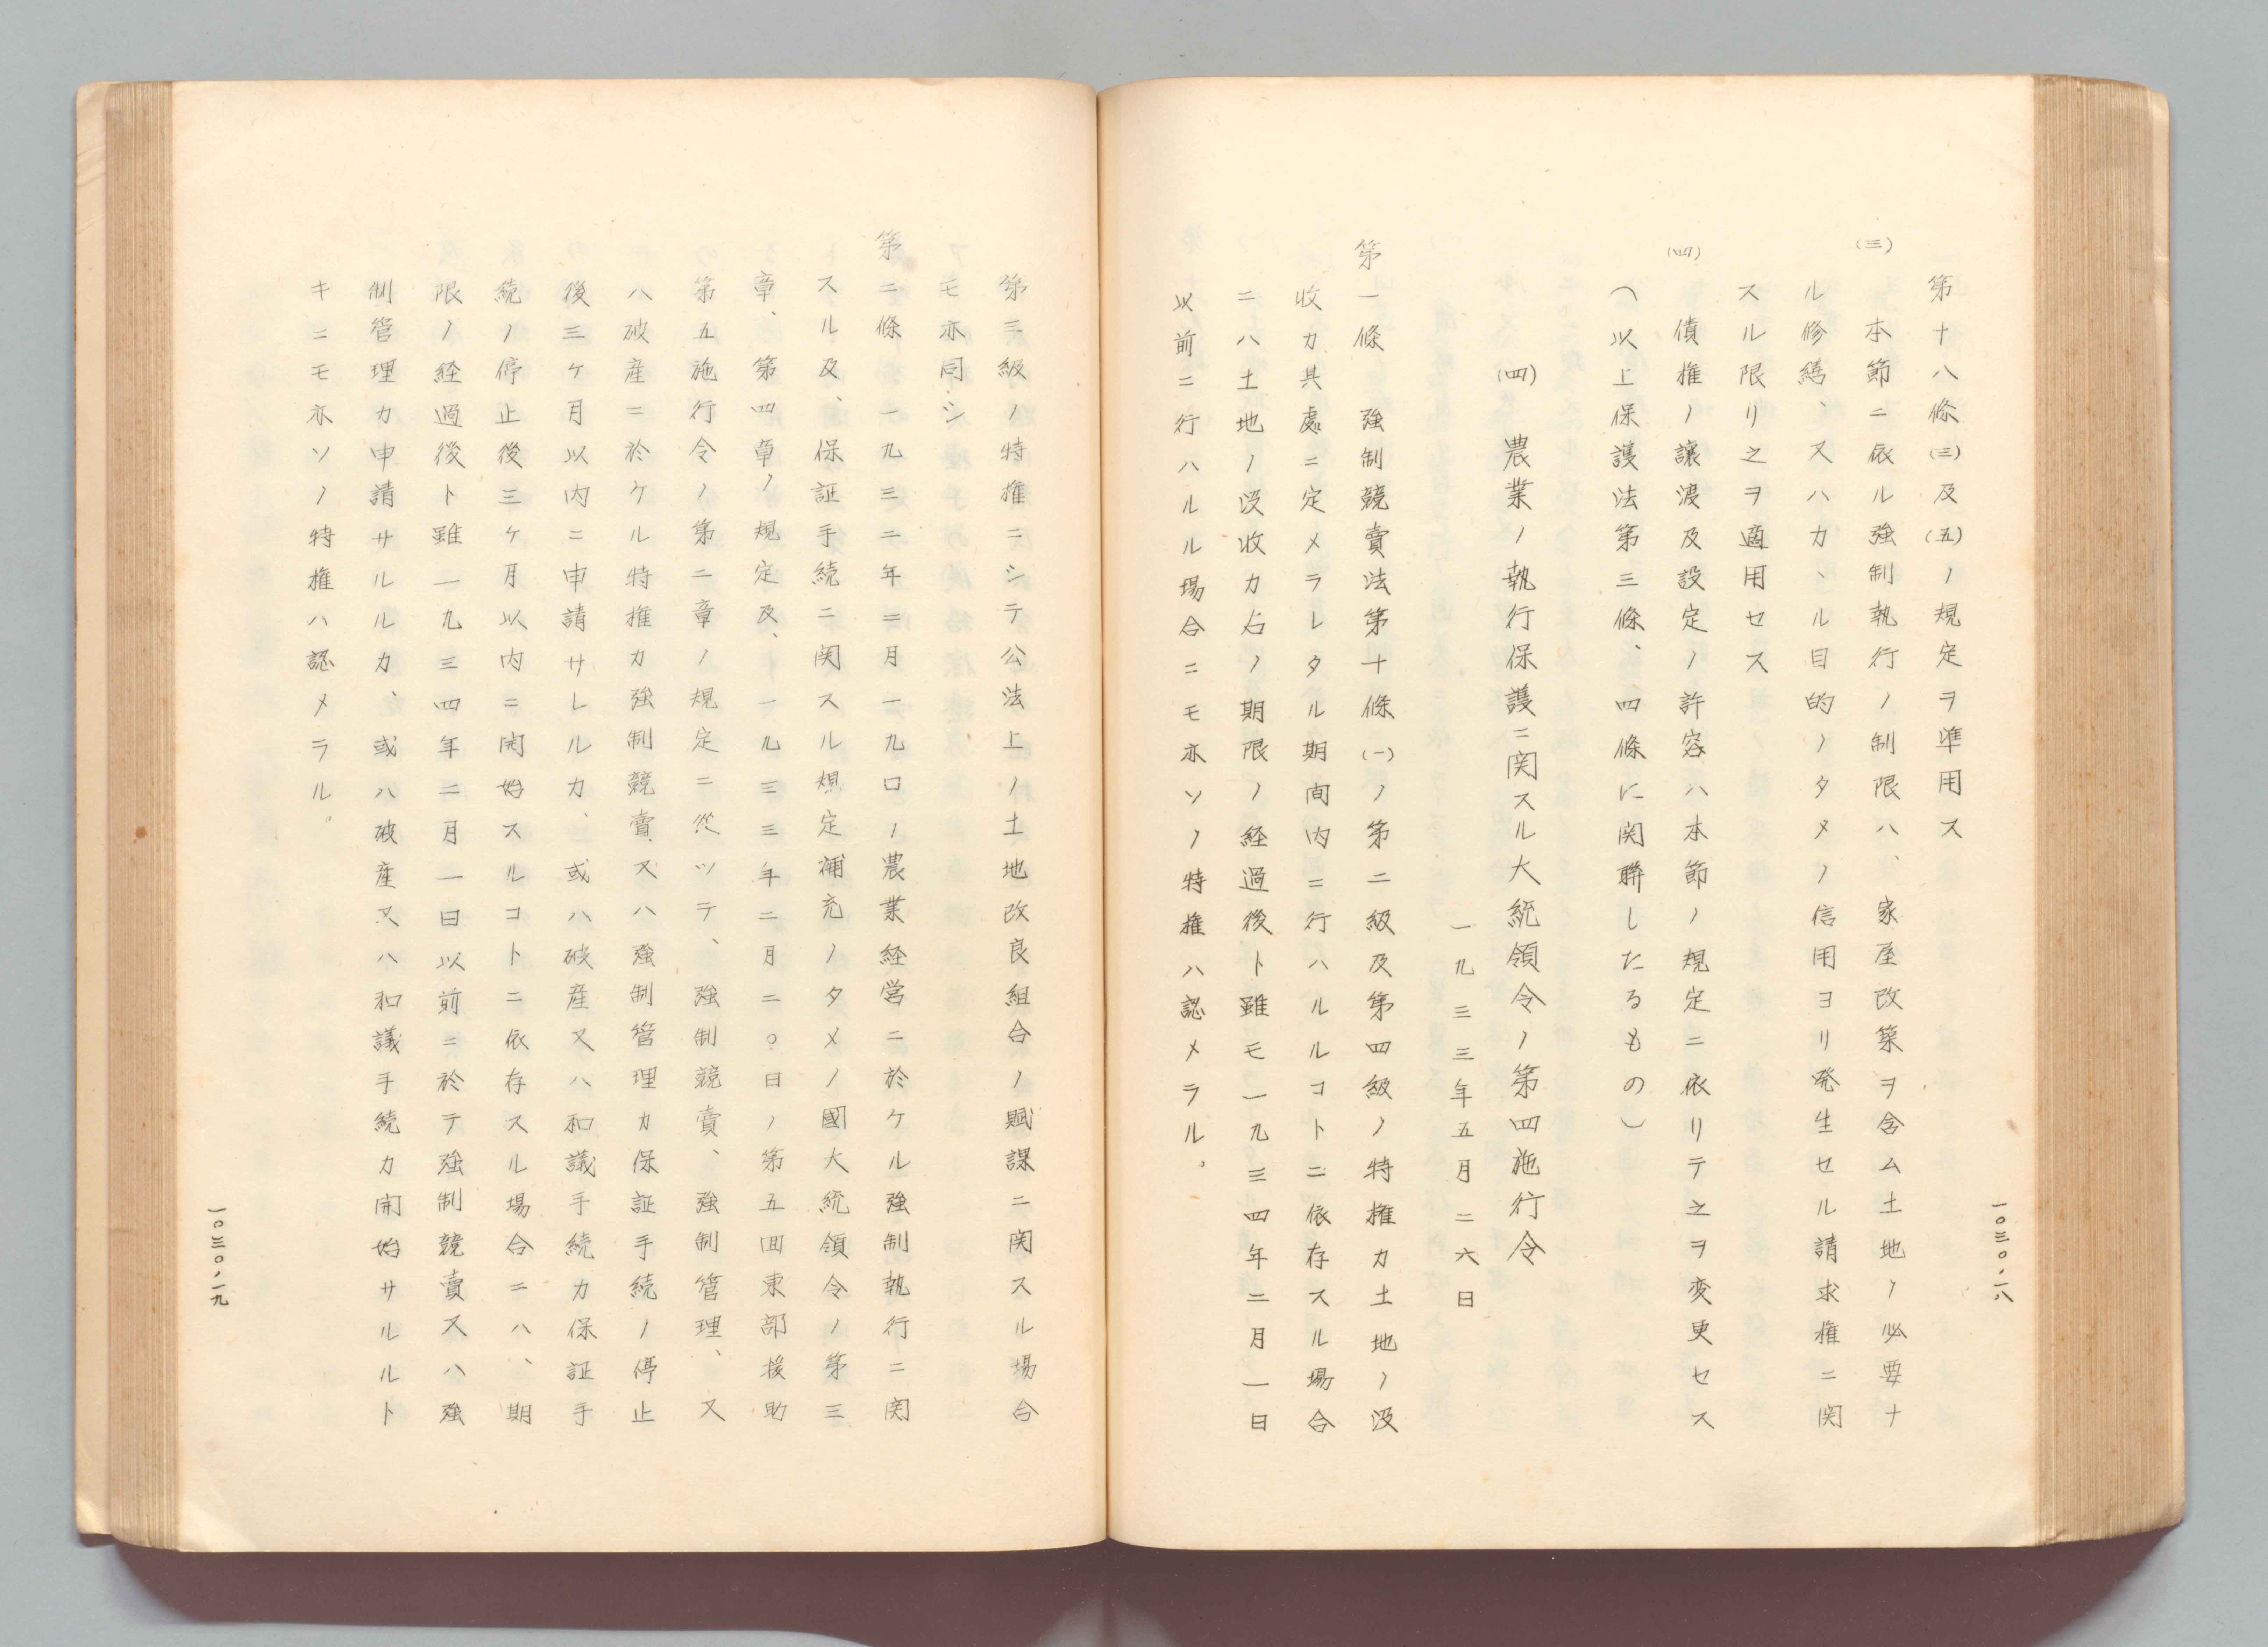 第十八條(三)及(五)ノ規定ヲ準用ス
(三) 本節ニ依ル強制執行ノ制限ハ、家屋改築ヲ含ム土地ノ必要ナ
ル修繕、又ハカヽル目的ノタメノ信用ヨリ発生セル請求権ニ関
スル限リ之ヲ適用セス
(四) 債権ノ讓渡及設定ノ許容ハ本節ノ規定ニ依リテ之ヲ変更セス
(以上保護法第三條、四條に関聯したるもの)
(四) 農業ノ執行保護ニ関スル大統領令ノ第四施行令
一九三三年五月二六日
第一條 強制競賣法第十條(一)ノ第二級及第四級ノ特権カ土地ノ沒
收カ其處ニ定メラレタル期間内ニ行ハルルコトニ依存スル場合
ニハ土地ノ沒收カ右ノ期限ノ経過後ト雖モ一九三四年二月一日
以前ニ行ハルル場合ニモ亦ソノ特権ハ認メラル。
一〇三〇、一八
第三級ノ特権ニシテ公法上ノ土地改良組合ノ賦課ニ関スル場合
モ亦同シ
第二條 一九三二年二月一九日ノ農業経営ニ於ケル強制執行ニ関
スル及、保証手続ニ関スル規定補充ノタメノ國大統領令ノ第三
章、第四章ノ規定及、一九三三年二月二〇日ノ第五回東部援助
第五施行令ノ第二章ノ規定ニ從ツテ、強制競賣、強制管理、又
ハ破産ニ於ケル特権カ強制競賣又ハ強制管理カ保証手続ノ停止
後三ケ月以内ニ申請サレルカ、或ハ破産又ハ和議手続カ保証手
続ノ停止後三ケ月以内ニ開始スルコトニ依存スル場合ニハ、期
限ノ経過後ト雖一九三四年二月一日以前ニ於テ強制競賣又ハ強
制管理カ申請サルルカ、或ハ破産又ハ和議手続カ開始サルルト
キニモ亦ソノ特権ハ認メラル。
一〇三〇、一九